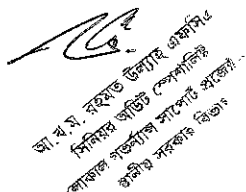 আ. খ. ম. রহমত উল্যাহ এফসিএ
সিনিয়র অডিট স্পেশালিষ্ট
লোকাল গভর্ন্যান্স সাপোর্ট প্রজেক্ট-
স্থানীয় সরকার বিভাগ